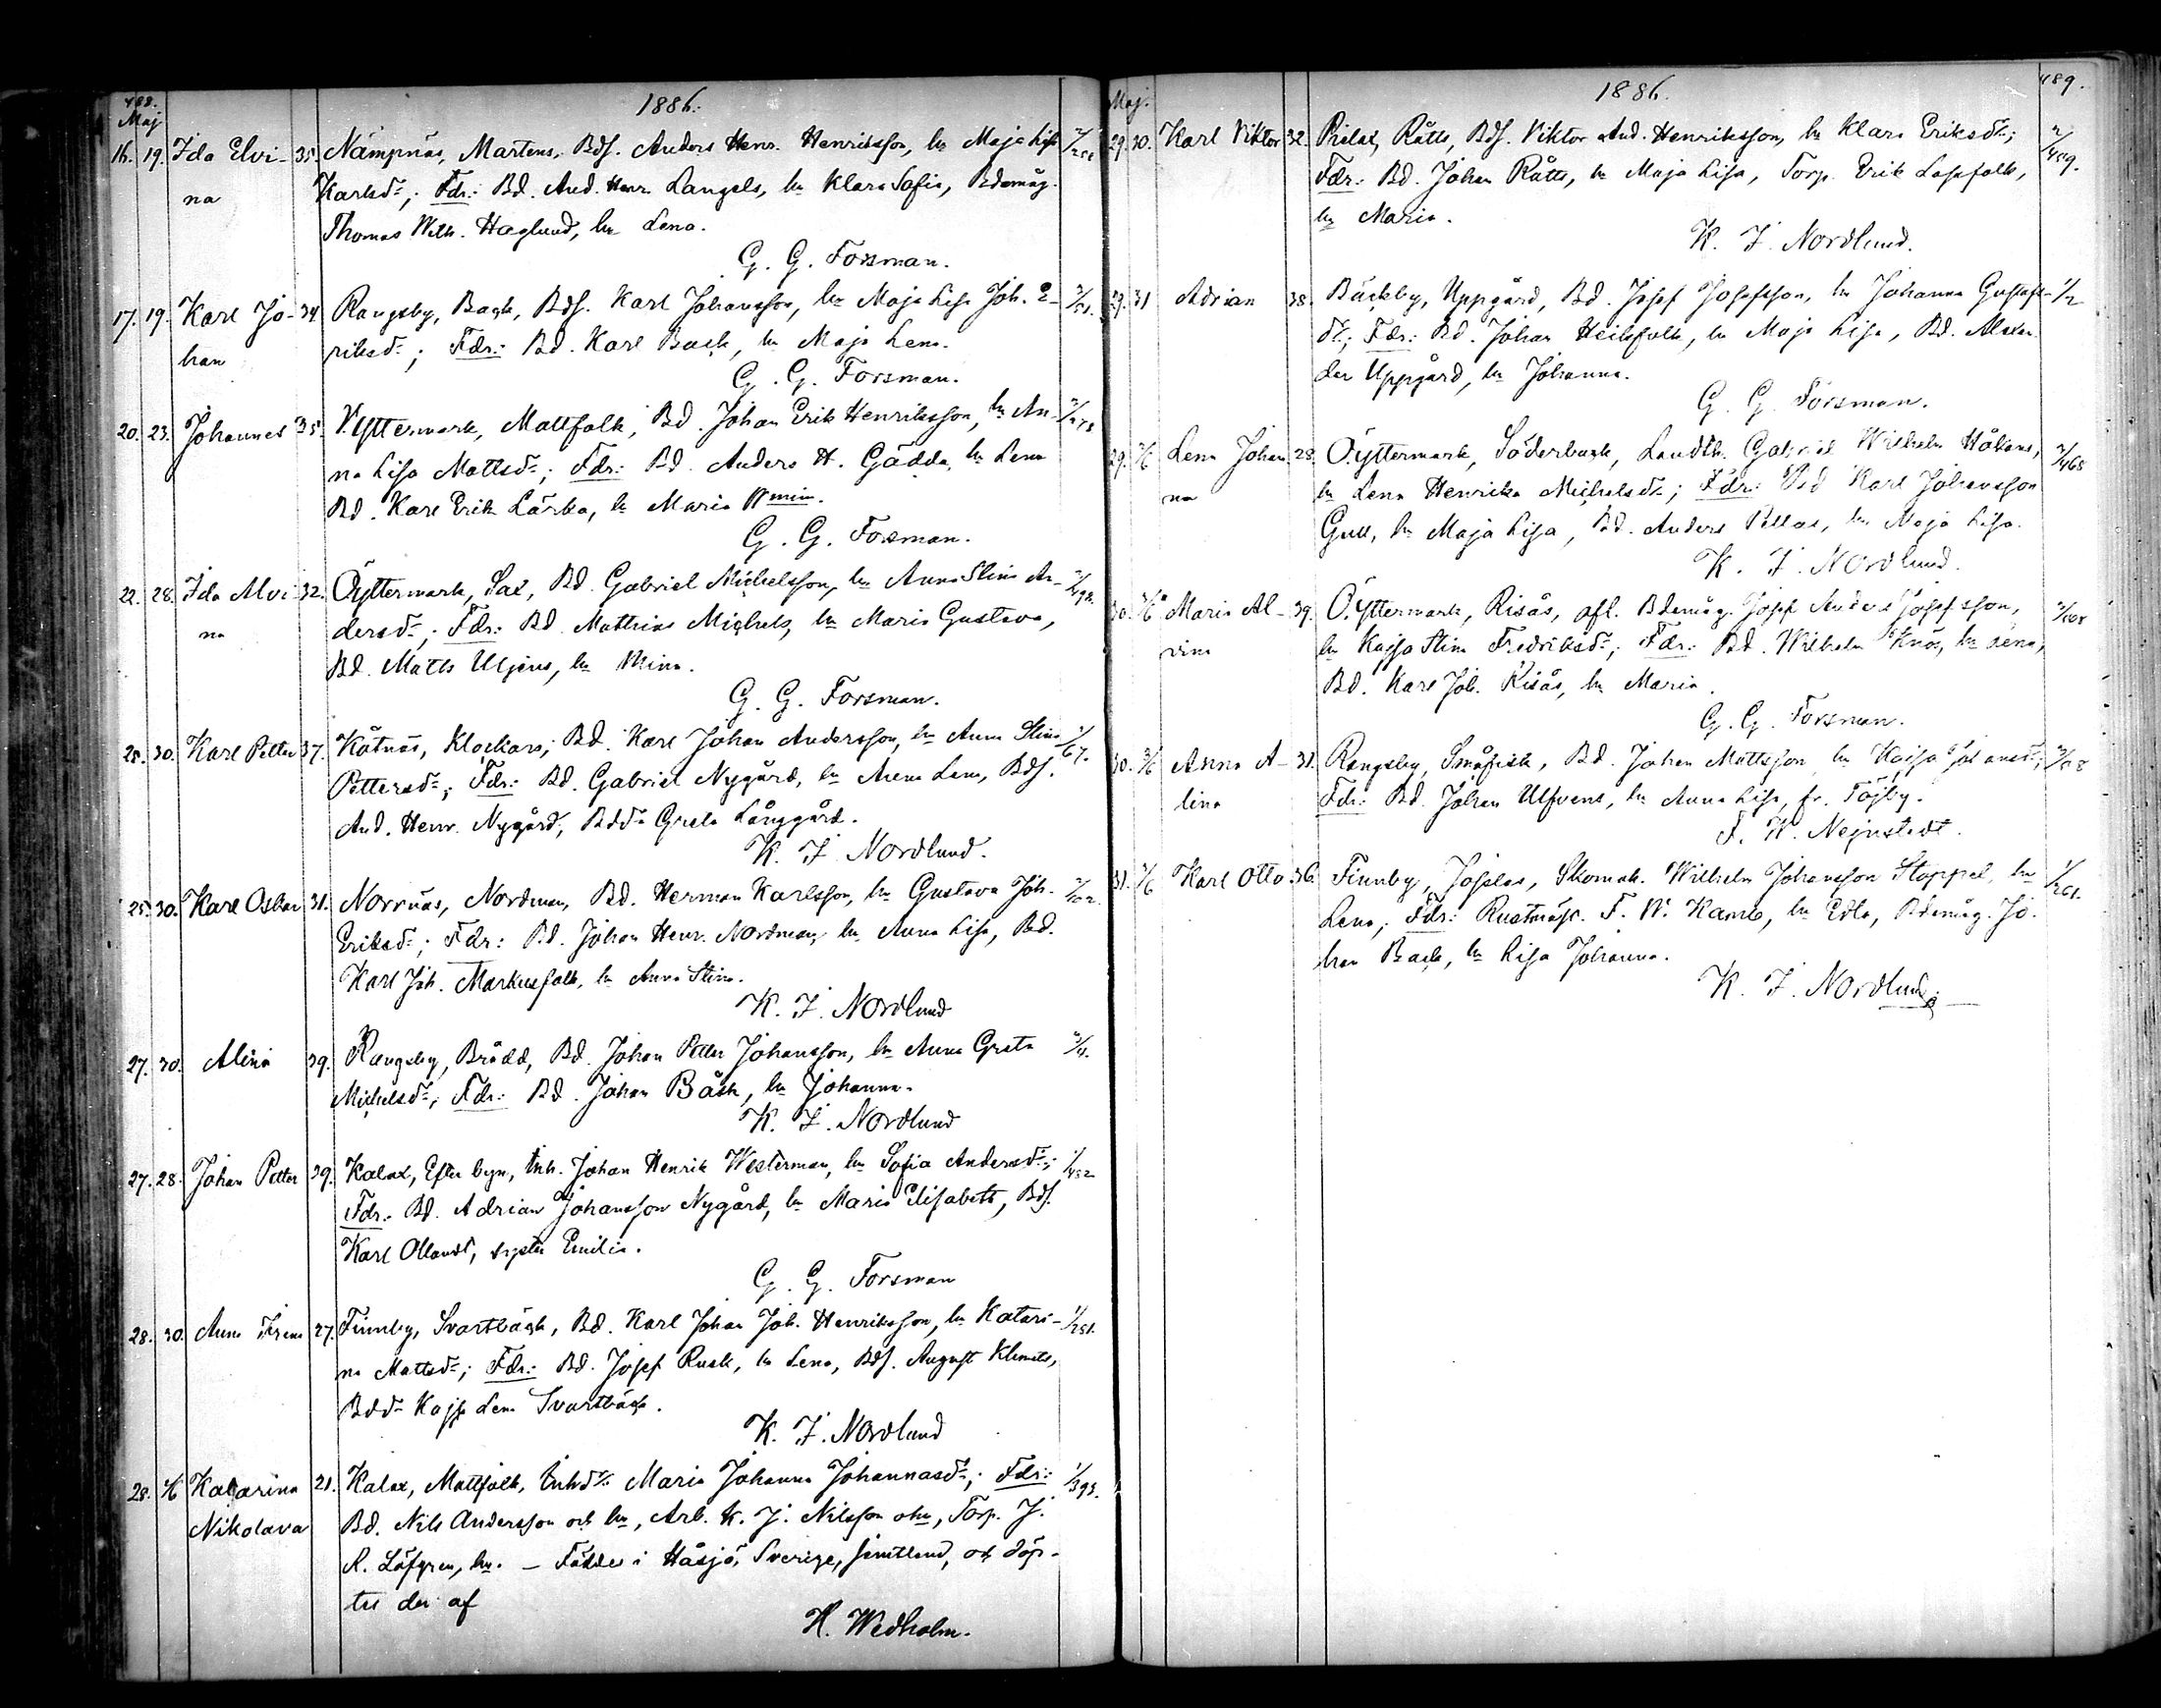 488.
1886.
Maj
16. 19. Ida Elvi- 35. Nämpnäs, Martens, Bdf. Anders Henr. Henriksson, hu Maja Lisa
na Karlsdr; Fdr: Bd. And. Henr. Langels, hu Klara Sofia, Bdemåg.
Thomas Wilh. Haglund, hu Lena.
G. G. Forsman.
17. 19. Karl Jo- 34 Rangsby, Back, Bdf. Karl Johansson, hu Maja Lisa Joh. E-
han riksdr; Fdr: Bd. Karl Back, hu Maja Lena.
G. G. Forsman.
20. 23. Johannes 35. Yttermark, Mattfolk, Bd. Johan Erik Henriksson, hu An-
na Lisa Mattsdr; Fdr: Bd. Anders H. Gädda, hu Lena
Bd. Karl Erik Lärka, hu Maria Wmin.
G. G. Forsman.
22. 28. Ida Alvi- 32. Öyttermark, Sax, Bd. Gabriel Michelsson, hu Anna Stina An-
na dersdr; Fdr: Bd. Matthias Michels, hu Maria Gustava,
Bd. Matts Uljens, hu Mina.
G. G. Forsman.
25. 30. Karl Petter 37. Kåtnäs, Klockars, Bd. Karl Johan Andersson, hu Anna Stina 1/67.
Pettersdr; Fdr: Bd. Gabriel Nygård, hu Anna Lena, Bdf.
And. Henr. Nygård, Bddr Greta Långgård.
K. J. Nordlund.
25. 30. Karl Oskar 31. Norrnäs, Nordman, Bd. Herman Karlsson, hu Gustava Joh.
Eriksdr; Fdr: Bd. Johan Henr. Nordman, hu Anna Lisa, Bd.
Karl Joh. Markusfolk, hu Anna Stina.
K. J. Nordlund
27. 30. Alina 39. Rangsby, Brädd, Bd. Johan Petter Johansson, hu Anna Greta
Michelsdr; Fdr: Bd. Johan Båsk, hu Johanna.
K. J. Nordlund
27. 28. Johan Petter 29. Kalax, Efter byn, Inh. Johan Henrik Westerman, hu Sofia Andersdr;
Fdr: Bd. Adrian Johansson Nygård, hu Maria Elisabeth, Bdf.
Karl Ollandt, syster Emilia.
G. G. Forsman
28. 30. Anna Irene 27. Finnby, Svartbäck, Bd. Karl Johan Joh. Henriksson, hu Katari- 1/251.
na Mattsdr; Fdr: Bd. Josef Rusk, hu Lena, Bdf. August Klemets,
Bddr Kajsa Lena Svartbäck.
K. J. Nordlund
28. Katarina 21. Kalax, Mattfolk, Inhdr Maria Johanna Johannasdr; Fdr: 1/393.
Nikolava Bd. Nils Andersson och hu, Arb. K. J. Nilsson o hu, Torp. J.
R. Löfgren, hu. – Föddes i Håsjö, Sverige, Jemtland, och döp-
tes der af
H. Wedholm.
1886.
489.
Maj.
29. 30. Karl Viktor 32. Pielax, Rätts, Bdf. Viktor And. Henriksson, hu Klara Eriksdr; 2/409.
Fdr: Bd. Johan Rätts, hu Maja Lisa, Torp. Erik Lassfolk,
hu Maria.
K. J. Nordlund.
29. 31 Adrian 38. Bäckby, Uppgård, Bd. Josef Josefsson, hu Johanna Gustafs- 1/2
dr; Fdr: Bd. Johan Heikfolk, hu Maja Lisa, Bd. Alexan-
der Uppgård, hu Johanna.
G. G. Forsman.
29. Lena Johan- 28. Öyttermark, Söderback, Landth. Gabriel Wilhelm Håkans, 2/468
na hu Lena Henrika Michelsdr; Fdr: Bd. Karl Johansson
Gull, hu Maja Lisa, Bd. Anders Pellas, hu Maja Lisa.
K. J. Nordlund.
30. Maria Al- 39. Öyttermark, Risås, afl. Bdemåg. Josef Anders Josefsson,
vina hu Kajsa Stina Fredriksdr; Fdr: Bd. Wilhelm Knös, hu Lena,
Bd. Karl Joh. Risås, hu Maria.
G. G. Forsman.
30. Anna A- 31. Rangsby, Småfisk, Bd. Johan Mattsson, hu Kajsa Johansdr;
lina Fdr: Bd. Johan Ulfvens, hu Anna Lisa, fr. Töjby.
F. W. Nejnstedt.
31. Karl Otto 36. Finnby, Josslas, Skomak. Wilhelm Johansson Stoppel, hu 1/261.
Lena; Fdr: Rustmäst. F. W. Kamb, hu Edla, Bdemåg. Jo-
han Back, hu Lisa Johanna.
K. J. Nordlund.